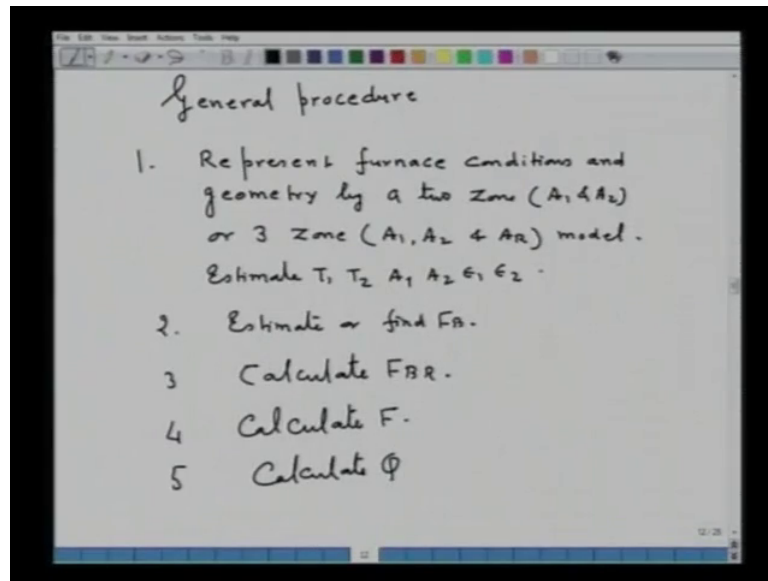 File Edit View Insert Actions Tools Help
General procedure
1. Represent furnace conditions and
geometry by a two zone (A1 & A2)
or 3 zone (A1, A2 & AR) model.
Estimate T1 T2 A1 A2 ϵ1 ϵ2.
2. Estimate or find FB.
3 Calculate FBR.
4 Calculate F.
5 Calculate Φ
12/25
12